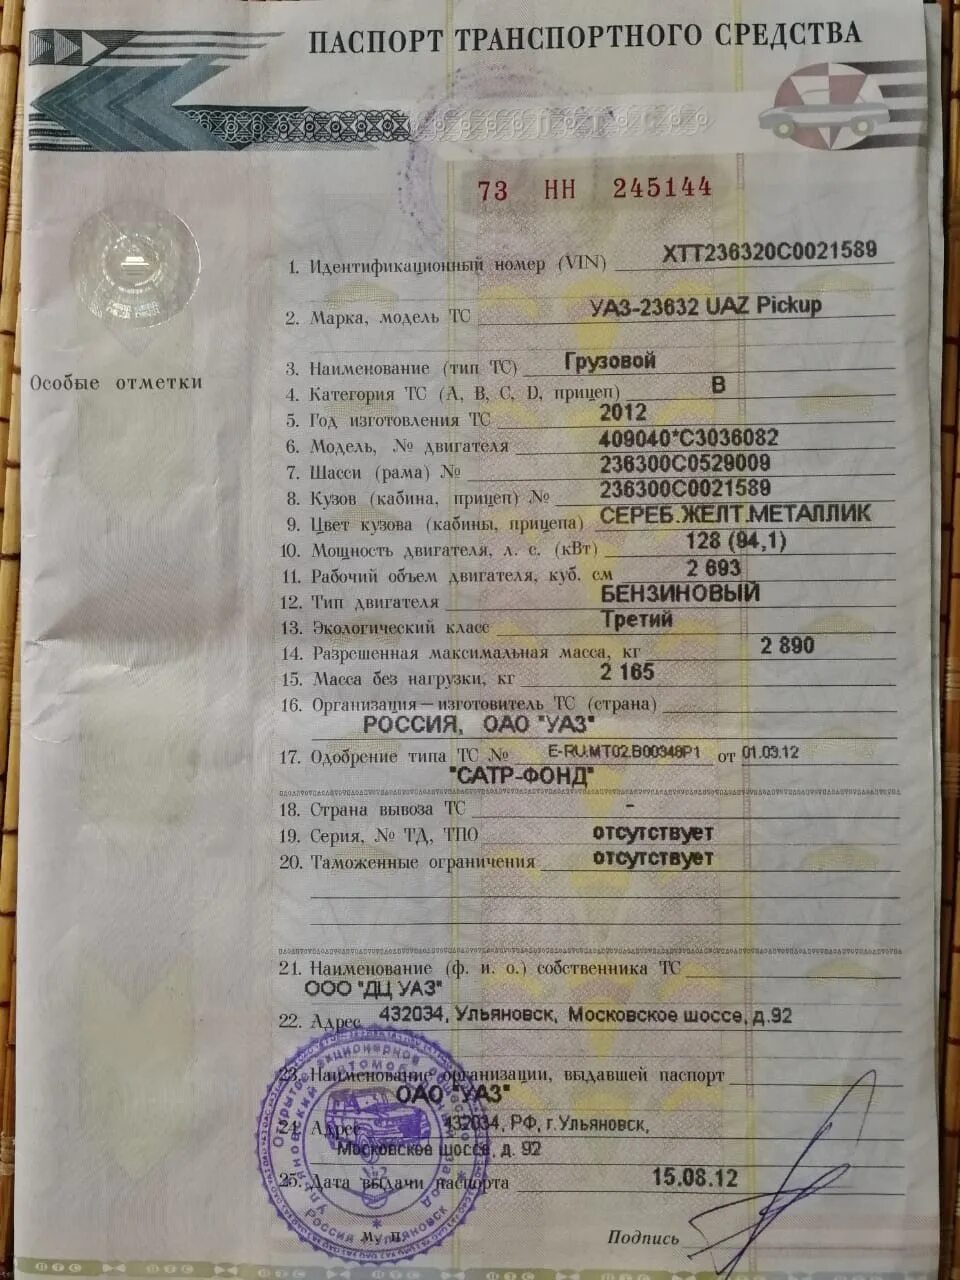 ПАСПОРТ ТРАНСПОРТНОГО СРЕДСТВА
73 НН 245144
1. Идентификационный номер (VIN) XTT236320C0021589
2. Марка, модель ТС УАЗ-23632 UAZ Pickup
3. Наименование (тип ТС) Грузовой
Особые отметки
4. Категория ТС (A, B, C, D, прицеп) B
5. Год изготовления ТС 2012
6. Модель, № двигателя 409040*C3036082
7. Шасси (рама) № 236300C0529009
8. Кузов (кабина, прицеп) № 236300C0021589
9. Цвет кузова (кабины, прицепа) СЕРЕБ.ЖЕЛТ.МЕТАЛЛИК
10. Мощность двигателя, л. с. (кВт) 128 (94,1)
11. Рабочий объем двигателя, куб. см 2 693
12. Тип двигателя БЕНЗИНОВЫЙ
13. Экологический класс Третий
14. Разрешенная максимальная масса, кг 2 890
15. Масса без нагрузки, кг 2 165
16. Организация – изготовитель ТС (страна)
РОССИЯ, ОАО "УАЗ"
17. Одобрение типа ТС № E-RU.MT02.B00348P1 от 01.03.12
"САТР-ФОНД"
18. Страна вывоза ТС -
19. Серия, № ТД, ТПО отсутствует
20. Таможенные ограничения отсутствует
21. Наименование (ф. и. о.) собственника ТС
ООО "ДЦ УАЗ"
22. Адрес 432034, Ульяновск, Московское шоссе, д.92
23. Наименование организации, выдавшей паспорт
ОАО "УАЗ"
24. Адрес 432034, РФ, г.Ульяновск,
Московское шоссе, д. 92
25. Дата выдачи паспорта 15.08.12
М. П.
Подпись